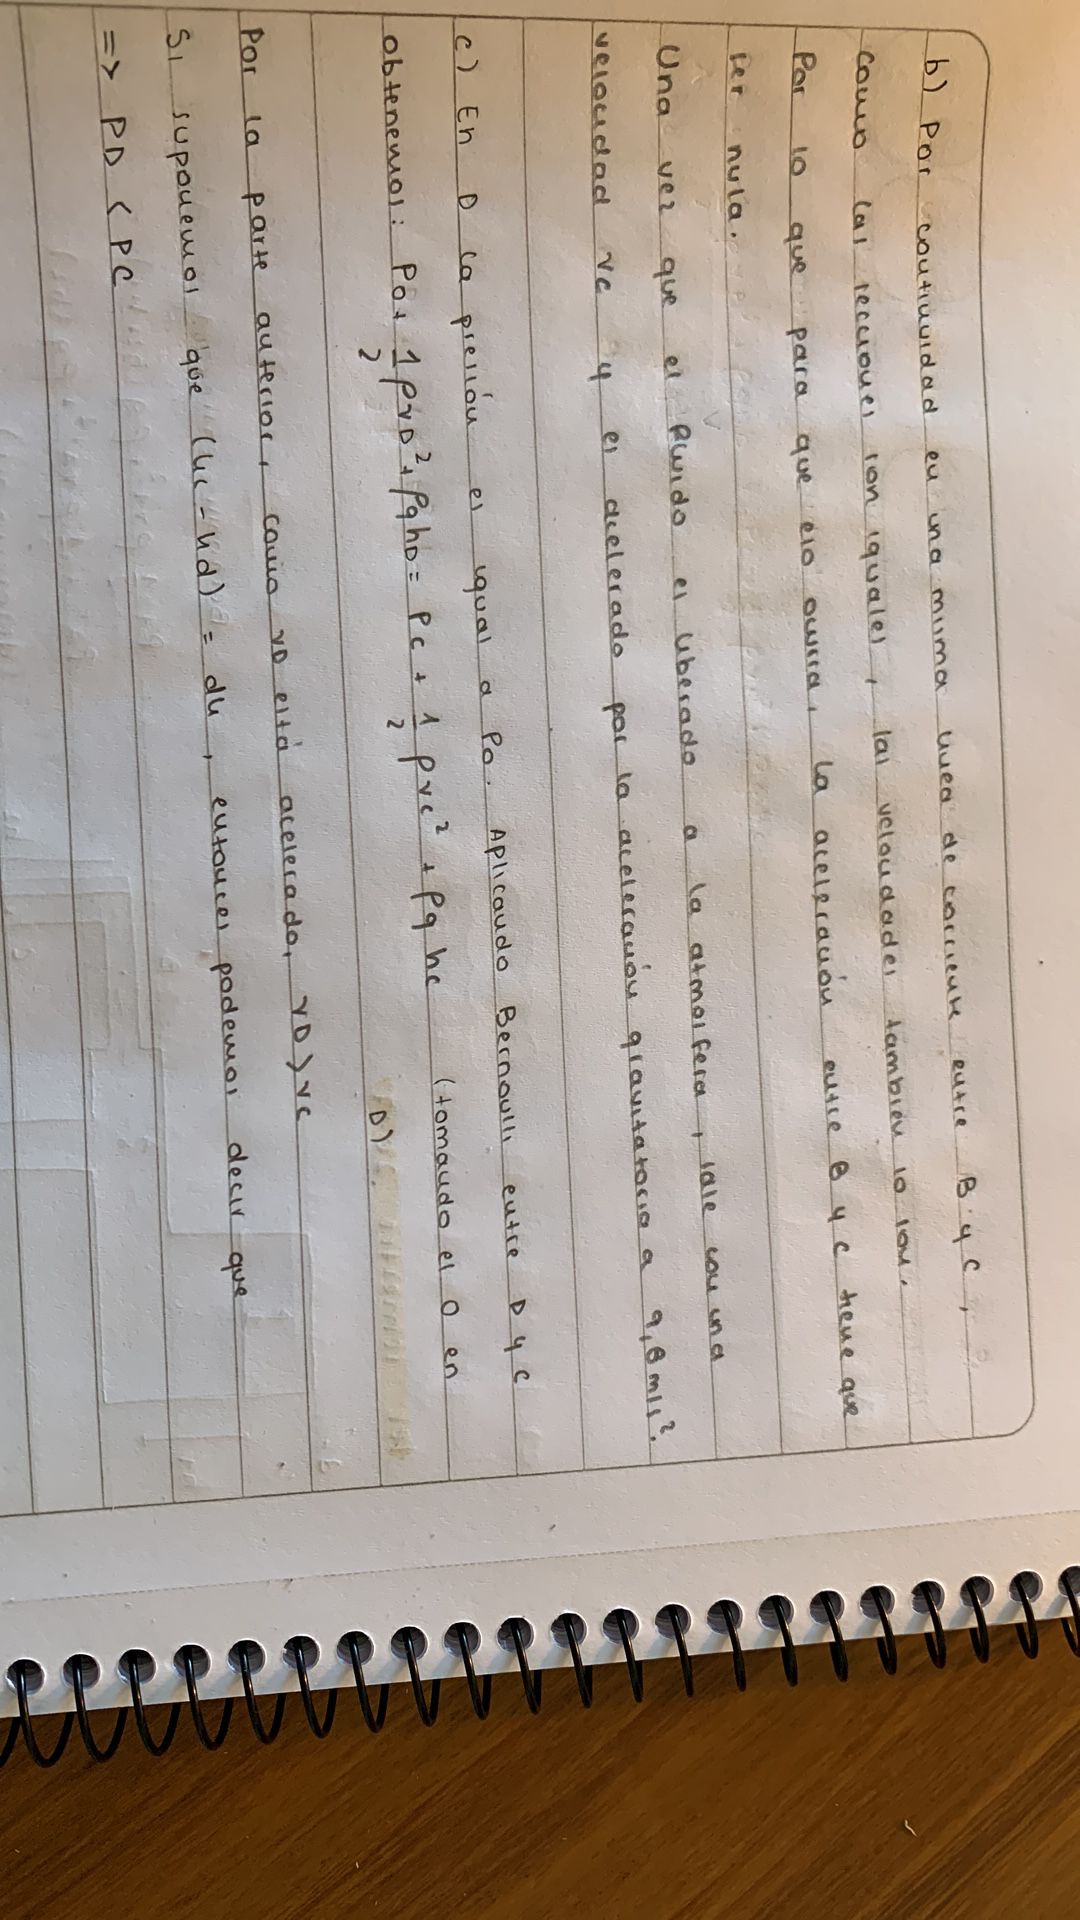 b) Por continuidad en una misma linea de corriente entre B y C,
como las secciones son iguales, las velocidades tambien lo son.
Por lo que para que eso ocurra, la aceleración entre B y C tiene que
ser nula.
Una vez que el fluido es liberado a la atmosfera, sale con una
velocidad vc y es acelerado por la aceleración gravitatoria a 9,8 m/s².
c) En D la presión es igual a Po. Aplicando Bernoulli entre D y C
obtenemos: Po + 1/2 ρvD² + ρghD = Pc + 1/2 ρvc² + ρg hc (tomando el 0 en
D)
Por la parte anterior, como vD está acelerado, vD > vc
Si suponemos que (hc - hd) = dh, entonces podemos decir que
=> PD < PC